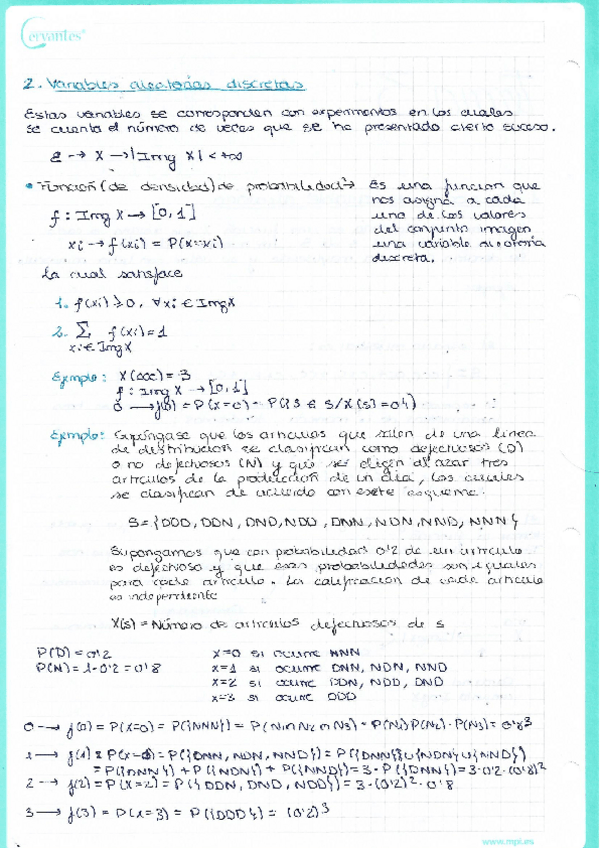 Cervantes
2. Variables aleatorias discretas
Estas variables se corresponden con experimentos en los cuales
se cuenta el número de veces que se ha presentado cierto suceso.
→ X → |Img X| < +∞
• Función (de densidad) de probabilidad → Es una función que
nos asigna a cada
f: Img X → [0,1] uno de los valores
del conjunto imagen
xi → f(xi) = P(X=xi) una variable aleatoria
discreta.
La cual satisface
1. f(xi) ≥ 0, ∀xi ∈ Img X
2. Σ f(xi) = 1
xi ∈ Img X
Ejemplo: X(ccc) = 3
f: Img X → [0,1]
0 → f(0) = P(X=0) = P({s ∈ S/X(s) = 0})
Ejemplo: Supóngase que los artículos que salen de una línea
de distribución se clasifican como defectuosos (D)
o no defectuosos (N) y que se eligen al azar tres
artículos de la producción de un día, los cuales
se clasifican de acuerdo con este esquema:
S = {DDD, DDN, DND, NDD, DNN, NDN, NND, NNN}
Supongamos que con probabilidad 0'2 de un artículo
es defectuoso y que esas probabilidades son iguales
para cada artículo. La calificación de cada artículo
es independiente
X(s) = Número de artículos defectuosos de s
P(D) = 0'2 x=0 si ocurre NNN
P(N) = 1-0'2 = 0'8 x=1 si ocurre DNN, NDN, NND
x=2 si ocurre DDN, NDD, DND
x=3 si ocurre DDD
0 → f(0) = P(X=0) = P({NNN}) = P(N1∩N2∩N3) = P(N1)·P(N2)·P(N3) = 0'8³
1 → f(1) = P(X=1) = P({DNN, NDN, NND}) = P({DNN}∪{NDN}∪{NND})
= P({DNN}) + P({NDN}) + P({NND}) = 3·P({DNN}) = 3·0'2·(0'8)²
2 → f(2) = P(X=2) = P({DDN, DND, NDD}) = 3·(0'2)²·0'8
3 → f(3) = P(X=3) = P({DDD}) = (0'2)³
www.mpi.es